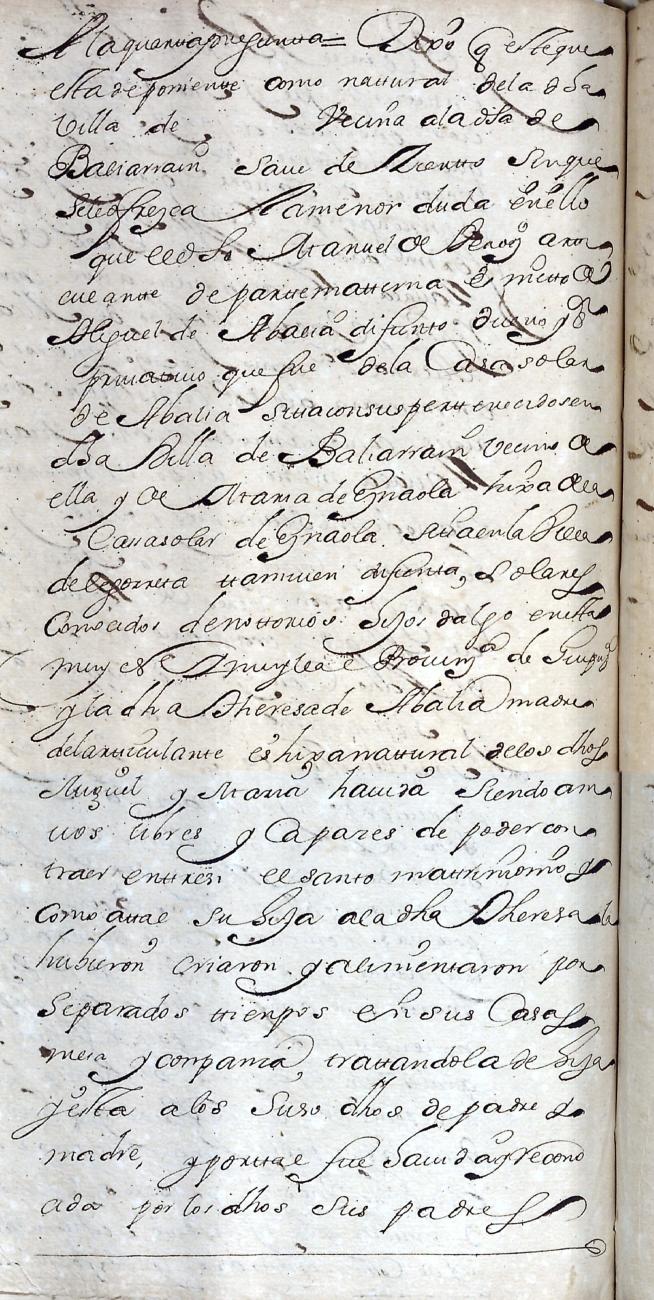 A la quarta pregunta = Dixo q este que
esta deponiente como natural de la dha
Villa de Vecina a la dha de
Baliarrain save de zierto sin que
se le ofrezca la menor duda en ello
que el dho Manuel de
de parte matterna es nietto de
Miguel de Abalia difunto dueño y
primitivo que fue de la Casa solar
de Abalia sita con sus perttenecidos en
dha Villa de Baliarrain vecino de
ella y de Maria de Ynaola hixa de la
Cassa solar de Ynaola sita en la Villa
de Legorreta ttamvien difunta, solares
Conocidos de nottorios hijos dalgo en esta
muy N. y muy leal Provinza de Guipuzª
y la dha Theresa de Abalia madre
del articulante es hixa nattural de los dhos
Miguel y Maria havida siendo am
vos libres y Capazes de poder con
traer entre si el santo mattrimonio y
como a tal su hija a la dha Theresa la
hubieron criaron y alimentaron por
separados ttienpos en sus Casas
mesa y conpania, trattandola de hija
y esta a los suso dhos de padre y
madre, y por tal fue havida y recono
cida por los dhos sus padres